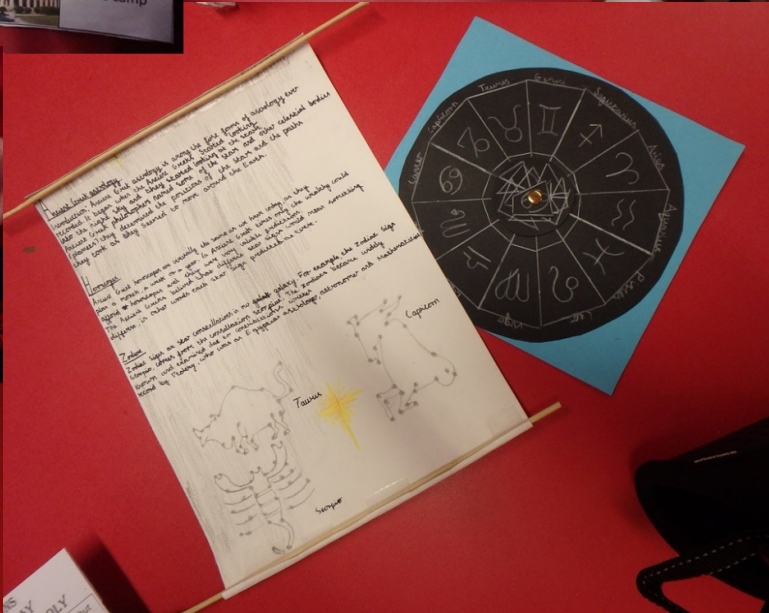 camp
Ancient Greek astrology
Introduction: Ancient Greek astrology is among the first forms of astrology ever
recorded. It began when the Ancient Greeks started looking
into the night sky and they started looking at the stars.
Ancient Greek philosophers named some of the stars and other celestial bodies
(planets) they determined the positions of the stars and the paths
they took as they seemed to move around the Earth.
Horoscopes
Ancient Greek horoscopes are virtually the same as we have today, as they
plan a month, a week or a year. In Ancient Greek times only the wealthy could
afford horoscopes and they were very reliable predictions.
The Ancient Greeks believed that different star signs would mean something
different, in other words each star sign predicted
Zodiac
Zodiac signs are star constellations in our galaxy. For example the Zodiac sign
Scorpio, comes from the constellation Scorpius. The zodiacs became widely
known and examined due to
record by Ptolemy, who was an Egyptian astrologer, astronomer and Mathematician.
Capricorn
Taurus
Scorpio
Gemini
Sagittarius
Aries
Aquarius
Pisces
Leo
Virgo
Cancer
Capricorn
Taurus
AY
OLY